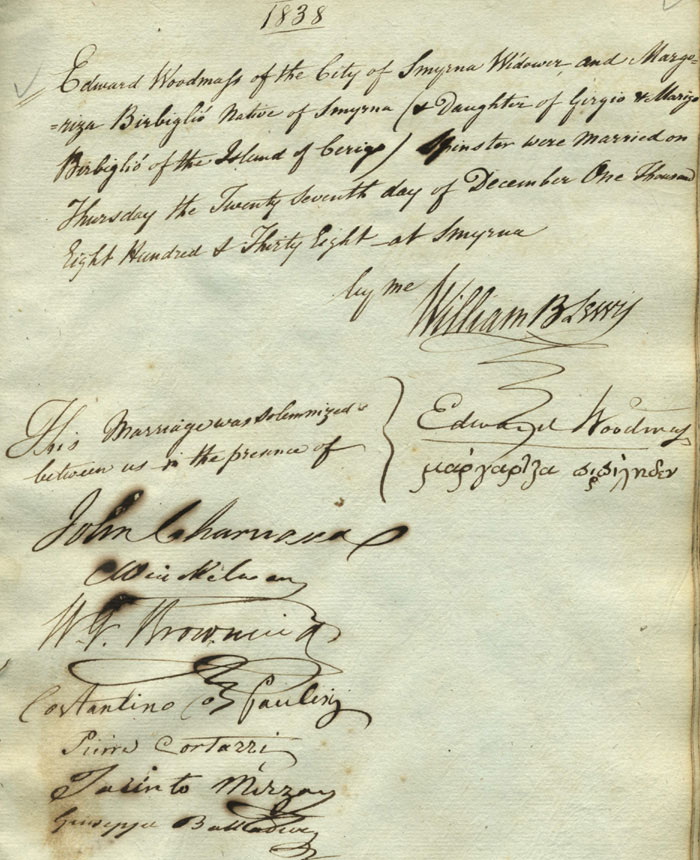 1838
Edward Woodmass of the City of Smyrna Widower and Marga=
=riza Birbiglió Native of Smyrna (& Daughter of Gergio & Mariza
Birbiglió of the Island of Cerigo) Spinster were married on
Thursday the Twenty Seventh day of December One Thousand
Eight Hundred & Thirty Eight at Smyrna
by me
William B Lewis
This Marriage was Solemnized
between us in the presence of
Edward Woodmass
μαργαρίζα
John Charnaud
W. G. Brown
Costantino
Pierre Cortazzi
Jacinto Mirzan
Giuseppe